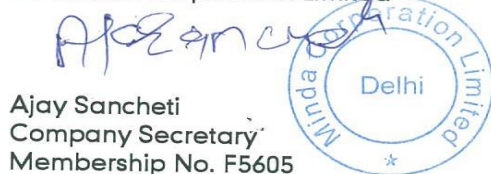 Ajay Sancheti
Company Secretary
Membership No. F5605
Minda Corporation Limited
Delhi